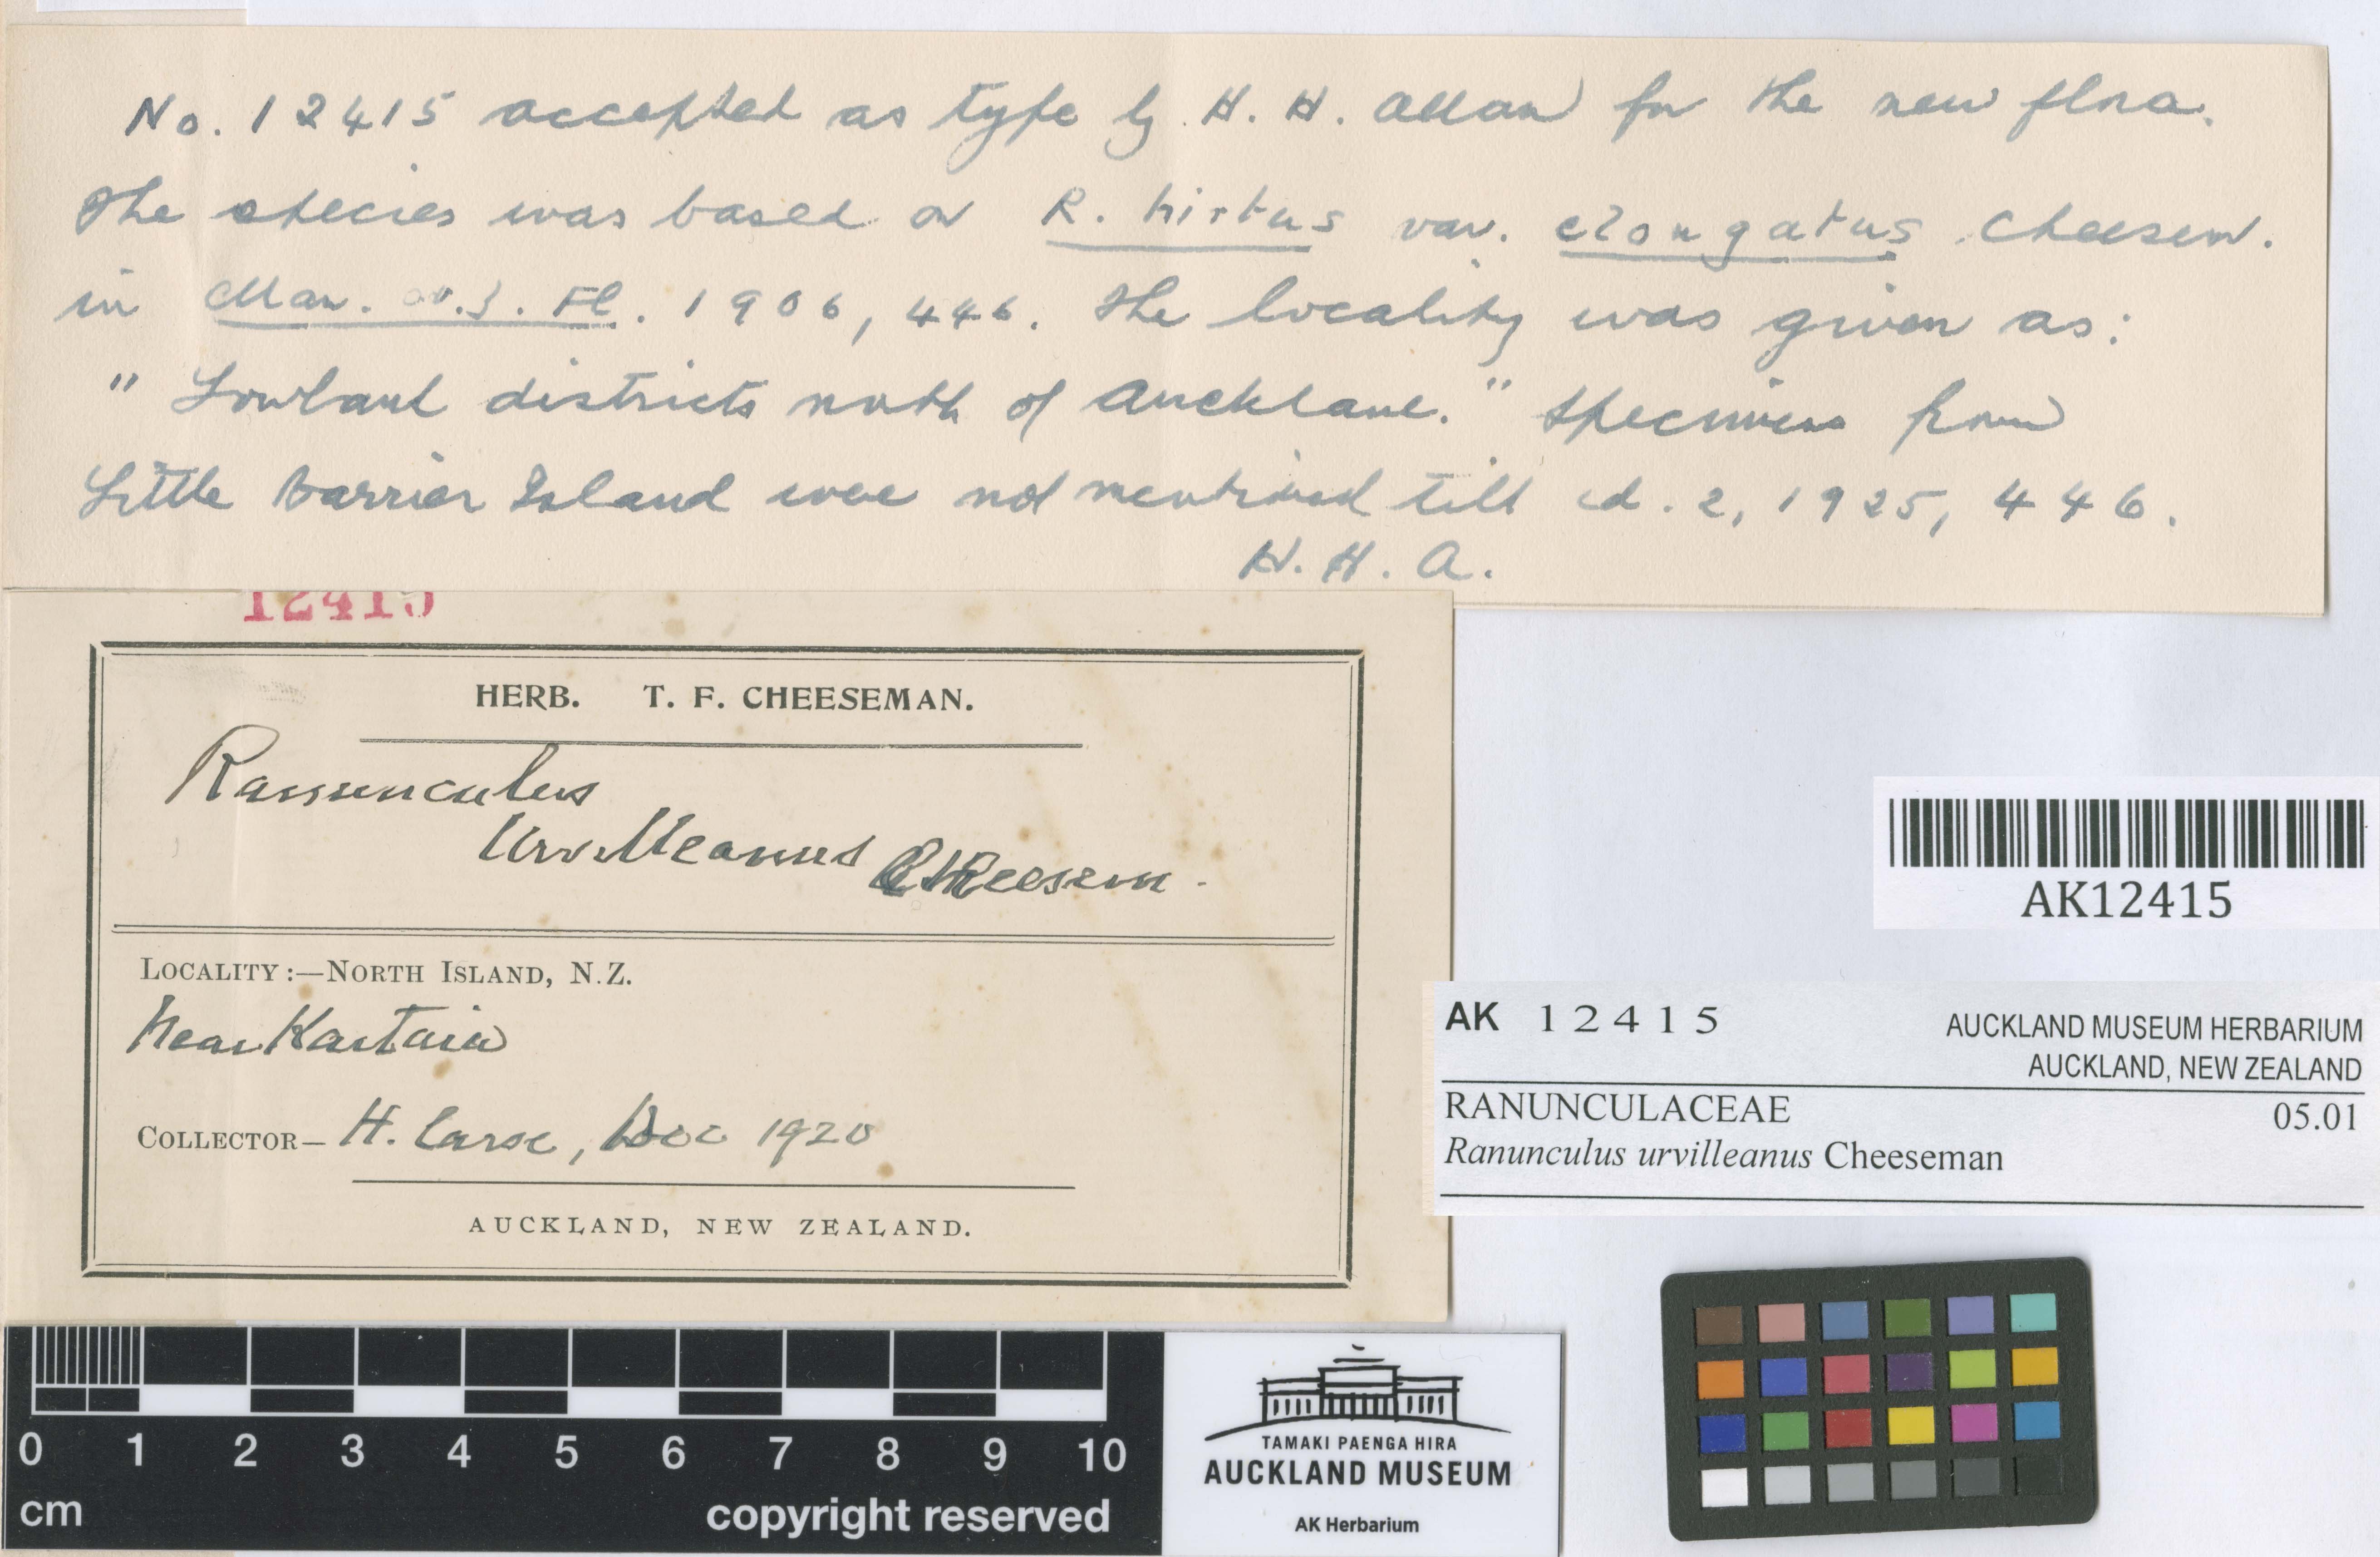 No. 12415 accepted as type by H. H. Allan for the new flora.
The species was based on R. hirtus var. elongatus Cheesem.
in Man. N.Z. Fl. 1906, 446. The locality was given as:
"Lowland districts north of Auckland." Specimens from
Little Barrier Island were not mentioned till ed. 2, 1925, 446.
H. H. A.
12415
HERB. T. F. CHEESEMAN.
Ranunculus
Urvilleanus Cheesem.
LOCALITY:—NORTH ISLAND, N.Z.
Near Kaitaia
COLLECTOR— H. Carse, Dec 1920
AUCKLAND, NEW ZEALAND.
AK12415
AK 12415 AUCKLAND MUSEUM HERBARIUM
AUCKLAND, NEW ZEALAND
RANUNCULACEAE 05.01
Ranunculus urvilleanus Cheeseman
0 1 2 3 4 5 6 7 8 9 10
cm copyright reserved
TAMAKI PAENGA HIRA
AUCKLAND MUSEUM
AK Herbarium